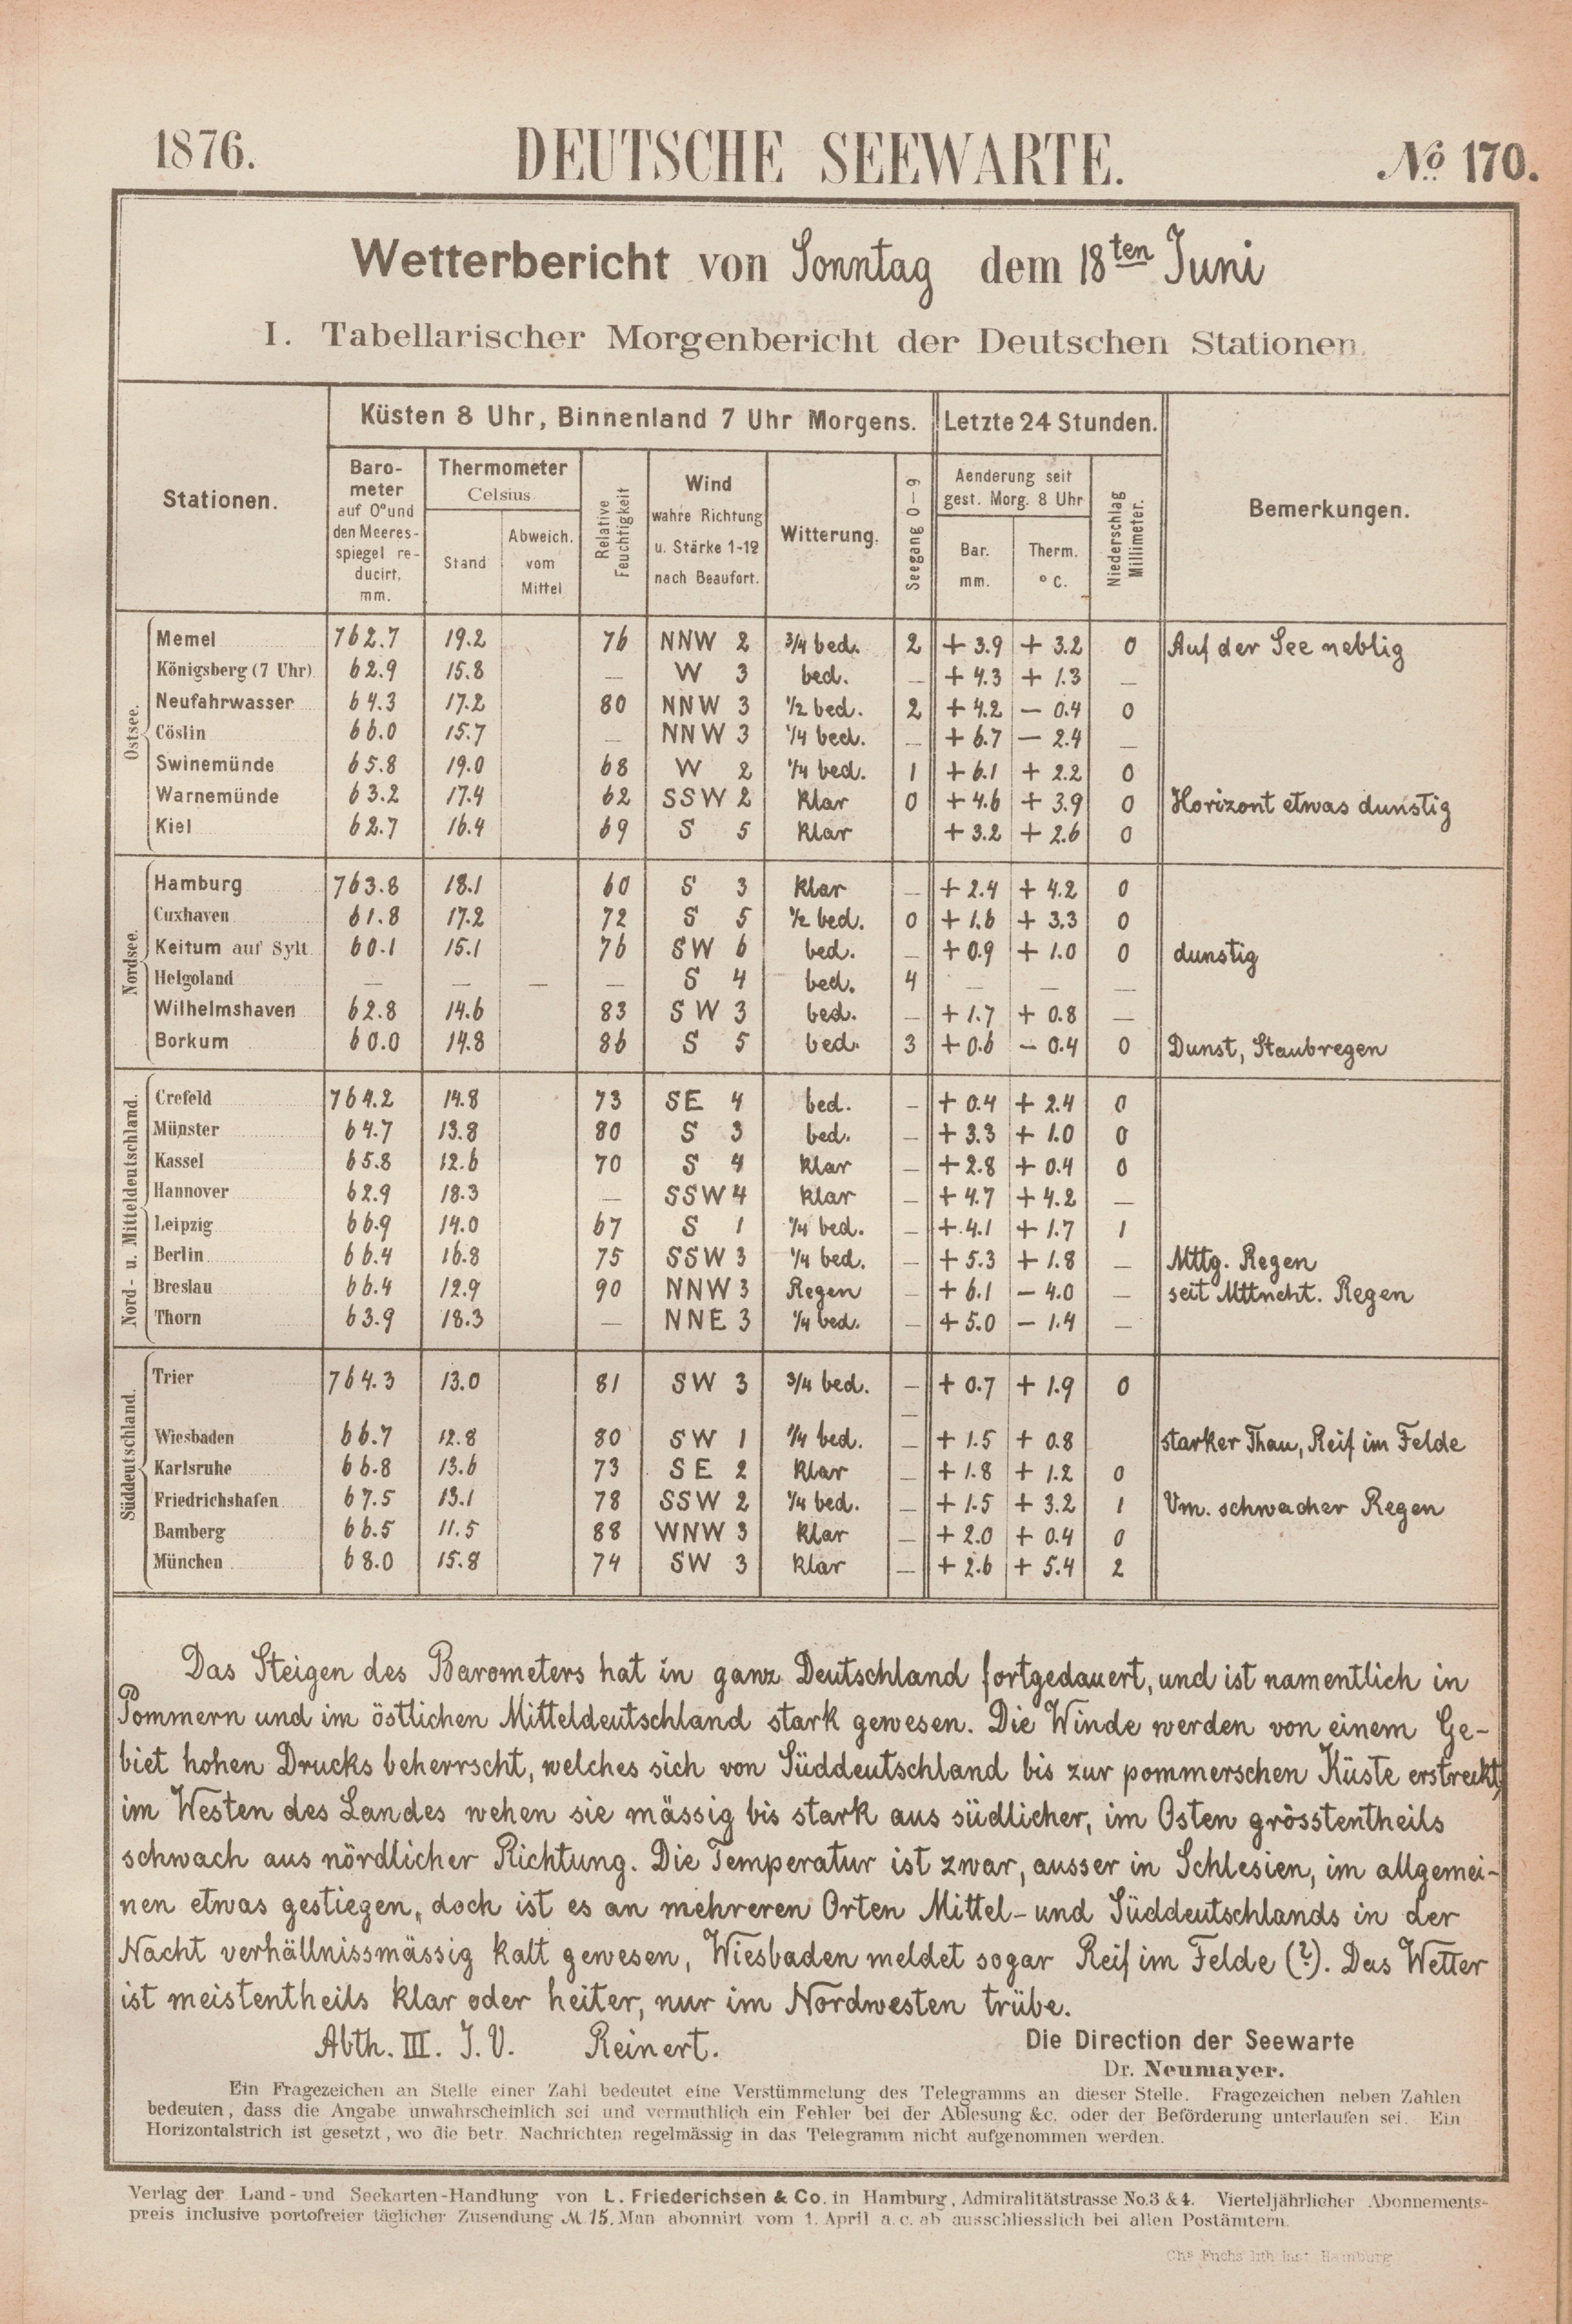 1876. DEUTSCHE SEEWARTE. No 170.
Wetterbericht von Sonntag dem 18ten Juni
I. Tabellarischer Morgenbericht der Deutschen Stationen.
Stationen.
Küsten 8 Uhr, Binnenland 7 Uhr Morgens.
Letzte 24 Stunden.
Bemerkungen.
Barometer auf 0° und den Meeresspiegel reducirt. mm.
Thermometer Celsius
Stand
Abweich. vom Mittel
Relative Feuchtigkeit
Wind wahre Richtung u. Stärke 1-12 nach Beaufort.
Witterung.
Seegang 0-9
Aenderung seit gest. Morg. 8 Uhr
Bar. mm.
Therm. °C.
Niederschlag Millimeter.
Ostsee.
Memel 762.7 19.2 76 NNW 2 3/4 bed. 2 + 3.9 + 3.2 0 Auf der See neblig
Königsberg (7 Uhr) 62.9 15.8 — W 3 bed. — + 4.3 + 1.3 —
Neufahrwasser 64.3 17.2 80 NNW 3 1/2 bed. 2 + 4.2 — 0.4 0
Cöslin 66.0 15.7 — NNW 3 1/4 bed. — + 6.7 — 2.4 —
Swinemünde 65.8 19.0 68 W 2 1/4 bed. 1 + 6.1 + 2.2 0
Warnemünde 63.2 17.4 62 SSW 2 klar 0 + 4.6 + 3.9 0 Horizont etwas dunstig
Kiel 62.7 16.4 69 S 5 klar + 3.2 + 2.6 0
Nordsee.
Hamburg 763.8 18.1 60 S 3 klar — + 2.4 + 4.2 0
Cuxhaven 61.8 17.2 72 S 5 1/2 bed. 0 + 1.6 + 3.3 0
Keitum auf Sylt 60.1 15.1 76 SW 6 bed. — + 0.9 + 1.0 0 dunstig
Helgoland — — — — S 4 bed. 4 — — —
Wilhelmshaven 62.8 14.6 83 SW 3 bed. — + 1.7 + 0.8 —
Borkum 60.0 14.8 86 S 5 bed. 3 + 0.6 — 0.4 0 Dunst, Staubregen
Nord- u. Mitteldeutschland.
Crefeld 764.2 14.8 73 SE 4 bed. — + 0.4 + 2.4 0
Münster 64.7 13.8 80 S 3 bed. — + 3.3 + 1.0 0
Kassel 65.8 12.6 70 S 4 klar — + 2.8 + 0.4 0
Hannover 62.9 18.3 — SSW 4 klar — + 4.7 + 4.2 —
Leipzig 66.9 14.0 67 S 1 1/4 bed. — + 4.1 + 1.7 1
Berlin 66.4 16.8 75 SSW 3 1/4 bed. — + 5.3 + 1.8 — Mttg. Regen
Breslau 66.4 12.9 90 NNW 3 Regen — + 6.1 — 4.0 — seit Mttncht. Regen
Thorn 63.9 18.3 — NNE 3 1/4 bed. — + 5.0 — 1.4 —
Süddeutschland.
Trier 764.3 13.0 81 SW 3 3/4 bed. — + 0.7 + 1.9 0
—
Wiesbaden 66.7 12.8 80 SW 1 1/4 bed. — + 1.5 + 0.8 starker Thau, Reif im Felde
Karlsruhe 66.8 13.6 73 SE 2 klar — + 1.8 + 1.2 0
Friedrichshafen 67.5 13.1 78 SSW 2 1/4 bed. — + 1.5 + 3.2 1 Vm. schwacher Regen
Bamberg 66.5 11.5 88 WNW 3 klar — + 2.0 + 0.4 0
München 68.0 15.8 74 SW 3 klar — + 2.6 + 5.4 2
Das Steigen des Barometers hat in ganz Deutschland fortgedauert, und ist namentlich in
Pommern und im östlichen Mitteldeutschland stark gewesen. Die Winde werden von einem Ge-
biet hohen Drucks beherrscht, welches sich von Süddeutschland bis zur pommerschen Küste erstreckt,
im Westen des Landes wehen sie mässig bis stark aus südlicher, im Osten grösstentheils
schwach aus nördlicher Richtung. Die Temperatur ist zwar, ausser in Schlesien, im allgemei-
nen etwas gestiegen, doch ist es an mehreren Orten Mittel- und Süddeutschlands in der
Nacht verhällnissmässig kalt gewesen, Wiesbaden meldet sogar Reif im Felde (?). Das Wetter
ist meistentheils klar oder heiter, nur im Nordwesten trübe.
Abth. III. J. V. Reinert. Die Direction der Seewarte
Dr. Neumayer.
Ein Fragezeichen an Stelle einer Zahl bedeutet eine Verstümmelung des Telegramms an dieser Stelle. Fragezeichen neben Zahlen
bedeuten, dass die Angabe unwahrscheinlich sei und vermuthlich ein Fehler bei der Ablesung &c. oder der Beförderung unterlaufen sei. Ein
Horizontalstrich ist gesetzt, wo die betr. Nachrichten regelmässig in das Telegramm nicht aufgenommen werden.
Verlag der Land- und Seekarten-Handlung von L. Friederichsen & Co. in Hamburg, Admiralitätstrasse No. 3 & 4. Vierteljährlicher Abonnements-
preis inclusive portofreier täglicher Zusendung M. 15. Man abonnirt vom 1. April a. c. ab ausschliesslich bei allen Postämtern.
Chs Fuchs lith inst Hamburg